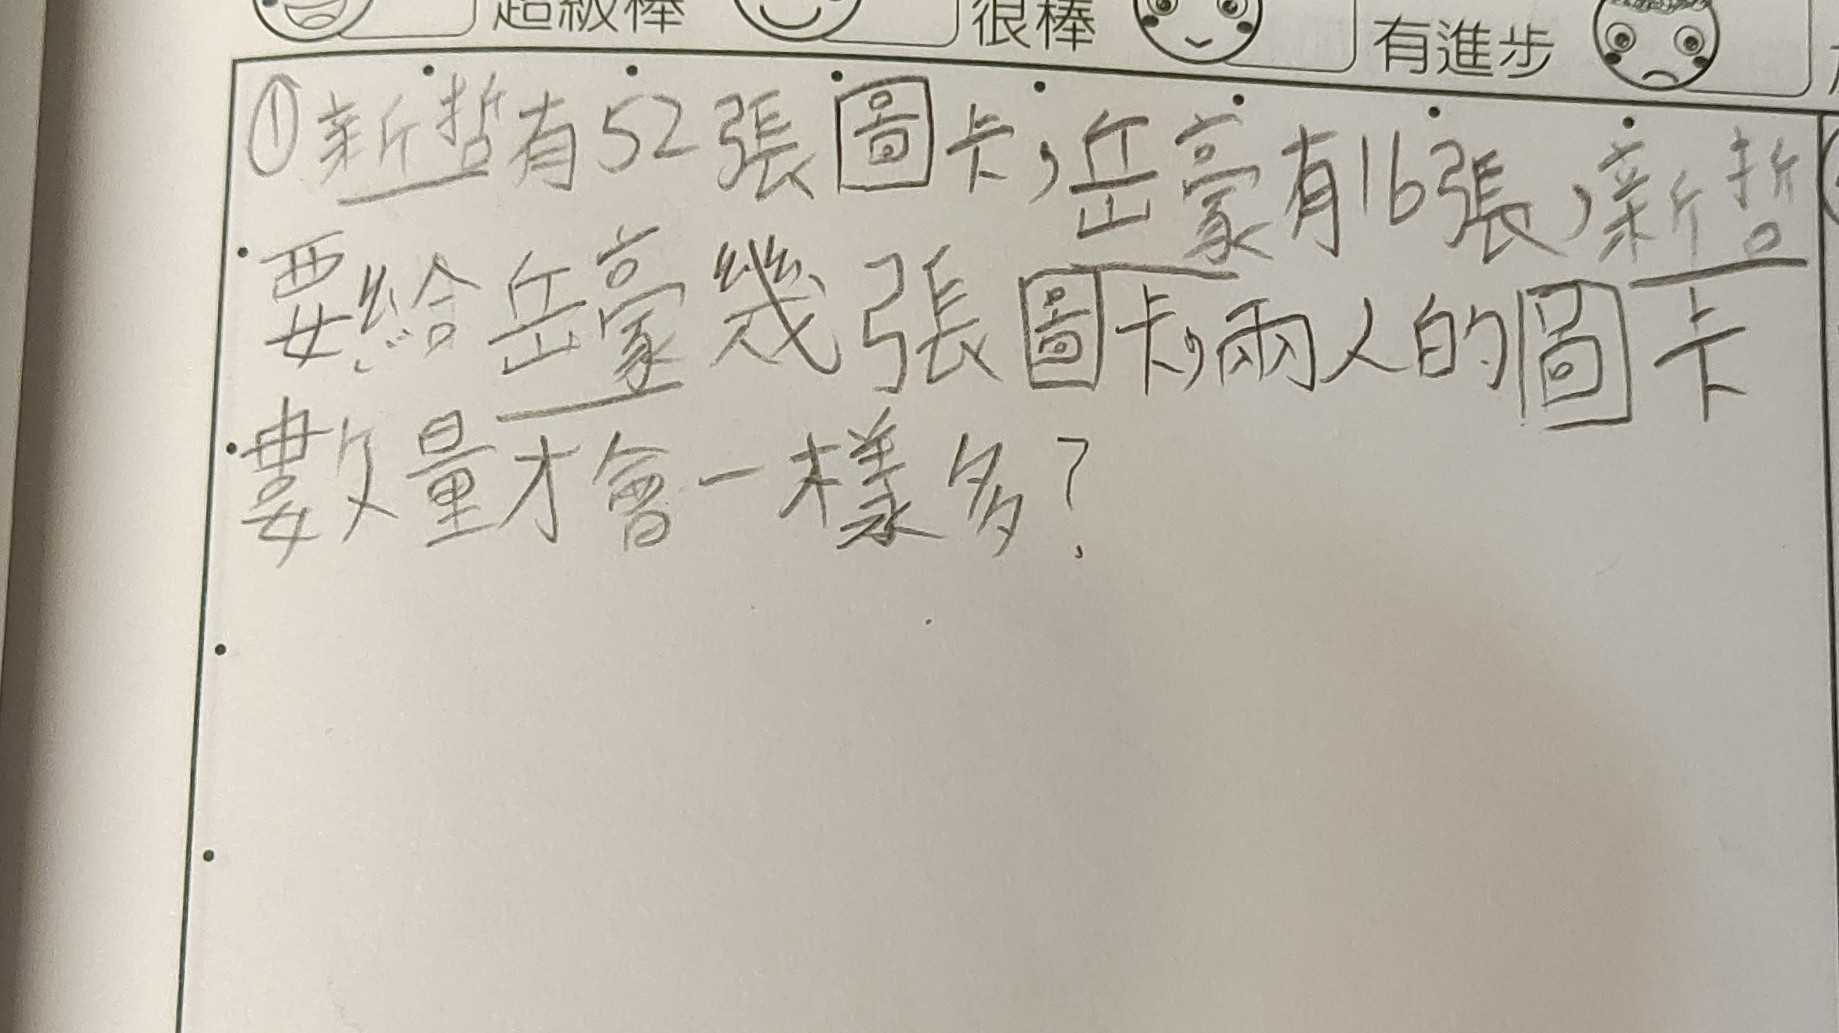 超級棒 很棒 有進步
①新哲有52張圖卡,岳豪有16張,新哲
要給岳豪幾張圖卡,兩人的圖卡
數量才會一樣多?